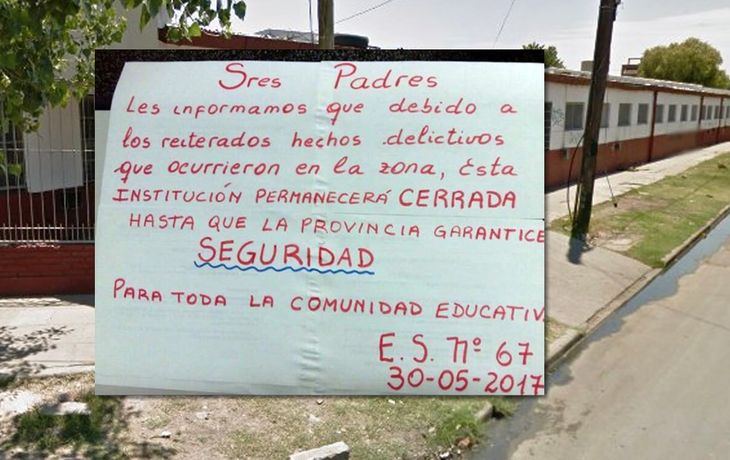 Sres Padres
Les informamos que debido a
los reiterados hechos delictivos
que ocurrieron en la zona, Ésta
INSTITUCIÓN PERMANECERÁ CERRADA
HASTA QUE LA PROVINCIA GARANTICE
SEGURIDAD
PARA TODA LA COMUNIDAD EDUCATIV
E. S. Nº 67
30-05-2017